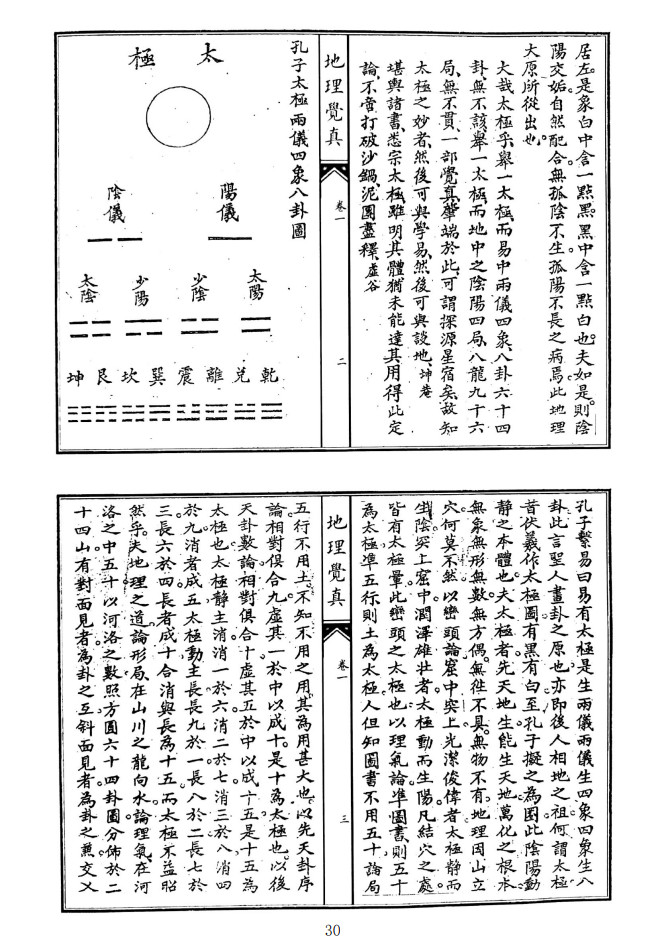 居左是象白中含一點黑黑中含一點白也夫如是則陰
陽交姤自然配合無孤陰不生孤陽不長之病焉此地理
大原所從出也
大哉太極乎舉一太極而易中兩儀四象八卦六十四
卦無不該舉一太極而地中之陰陽四局八龍九十六
局無不貫一部覺真肇端於此可謂探源星宿矣故知
太極之妙者然後可與學易然後可與談地 坤菴
堪輿諸書悉宗太極雖明其體猶未能達其用得此定
論不啻打破沙鍋泥團盡釋 虛谷
地理覺真
卷一
二
孔子太極兩儀四象八卦圖
太極
陽儀
陰儀
太陽
少陰
少陽
太陰
乾兌離震巽坎艮坤
孔子繫易曰易有太極是生兩儀兩儀生四象四象生八
卦此言聖人畫卦之原也亦即後人相地之祖何謂太極
昔伏羲作太極圖有黑有白至孔子擬之為圈此陰陽動
靜之本體也夫太極者先天地生能生天地萬化之根本
無象無形無數無方偶無往不具無物不有地理因山立
穴何莫不然以巒頭論窟中突上光潔俊偉者太極靜而
生陰突上窟中潤澤雄壯者太極動而生陽凡結穴之處
皆有太極暈此巒頭之太極也以理氣論準圖書則五十
為太極準五行則土為太極人但知圖書不用五十論局
地理覺真
卷一
三
五行不用土不知不用之用其為用甚大也以先天卦序
論相對俱合九虛其一於中以成十是十為太極也以後
天卦數論相對俱合十虛其五於中以成十五是十五為
太極也太極靜主消消一於六消二於七消三於八消四
於九消者成五太極動主長長九於一長八於二長七於
三長六於四長者成十合消與長為十五而太極不益昭
然乎夫地理之道論形局在山川之龍向水論理氣在河
洛之中五十以河洛之數照方圓六十四卦圖分佈於二
十四山有對面見者為卦之互斜面見者為卦之兼交乂
30